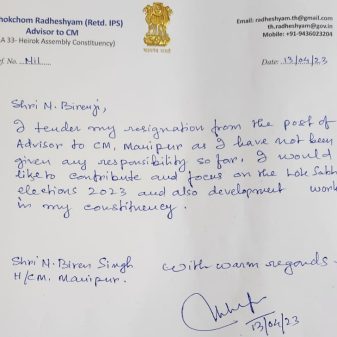 hokchom Radheshyam (Retd. IPS)
Advisor to CM
A 33- Heirok Assembly Constituency)
Email: radheshyam.th@gmail.com
th.radheshyam@gov.in
Phone: +91-9436023204
सत्यमेव जयते
ef. No. Nil
Date: 13/04/23
Shri N. Birenji,
I tender my resignation from the post of
Advisor to CM, Manipur as I have not been
given any responsibility so far. I would
like to contribute and focus on the Lok Sabh
elections 2023 and also development work
in my constituency.
Shri N. Biren Singh
H/CM, Manipur.
With warm regards -
13/04/23